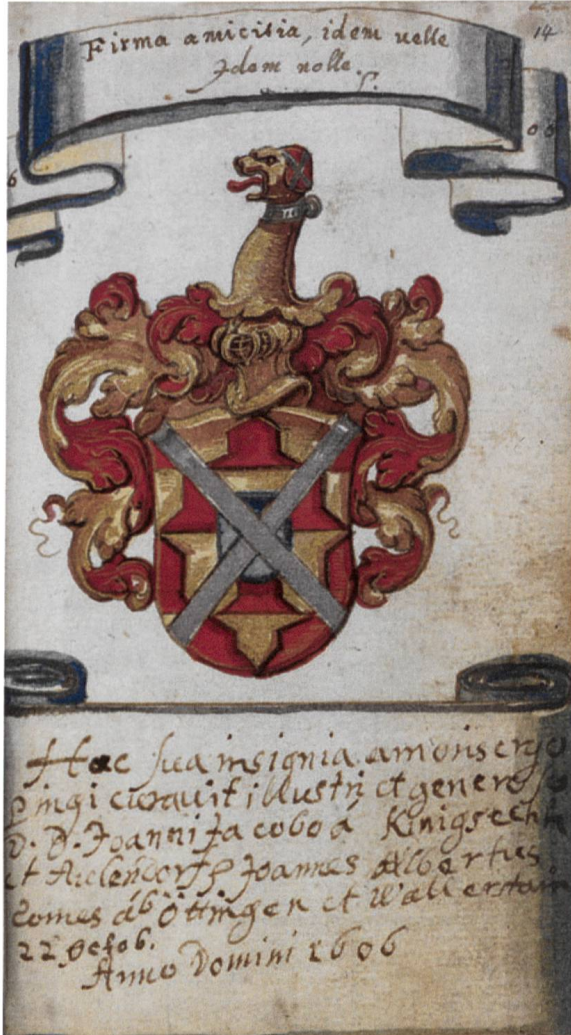 14
Firma amicitia, idem uelle
Idem nolle.
6
06
Hac sua insignia amoris ergo
pingi curauit illustri et generoso
D. D. Joanni Jacobo á Kinigsechk
et Aulendorf Joannes Albertus
Comes ab Öttingen et Wallerstain
22 Octob.
Anno Domini 1606